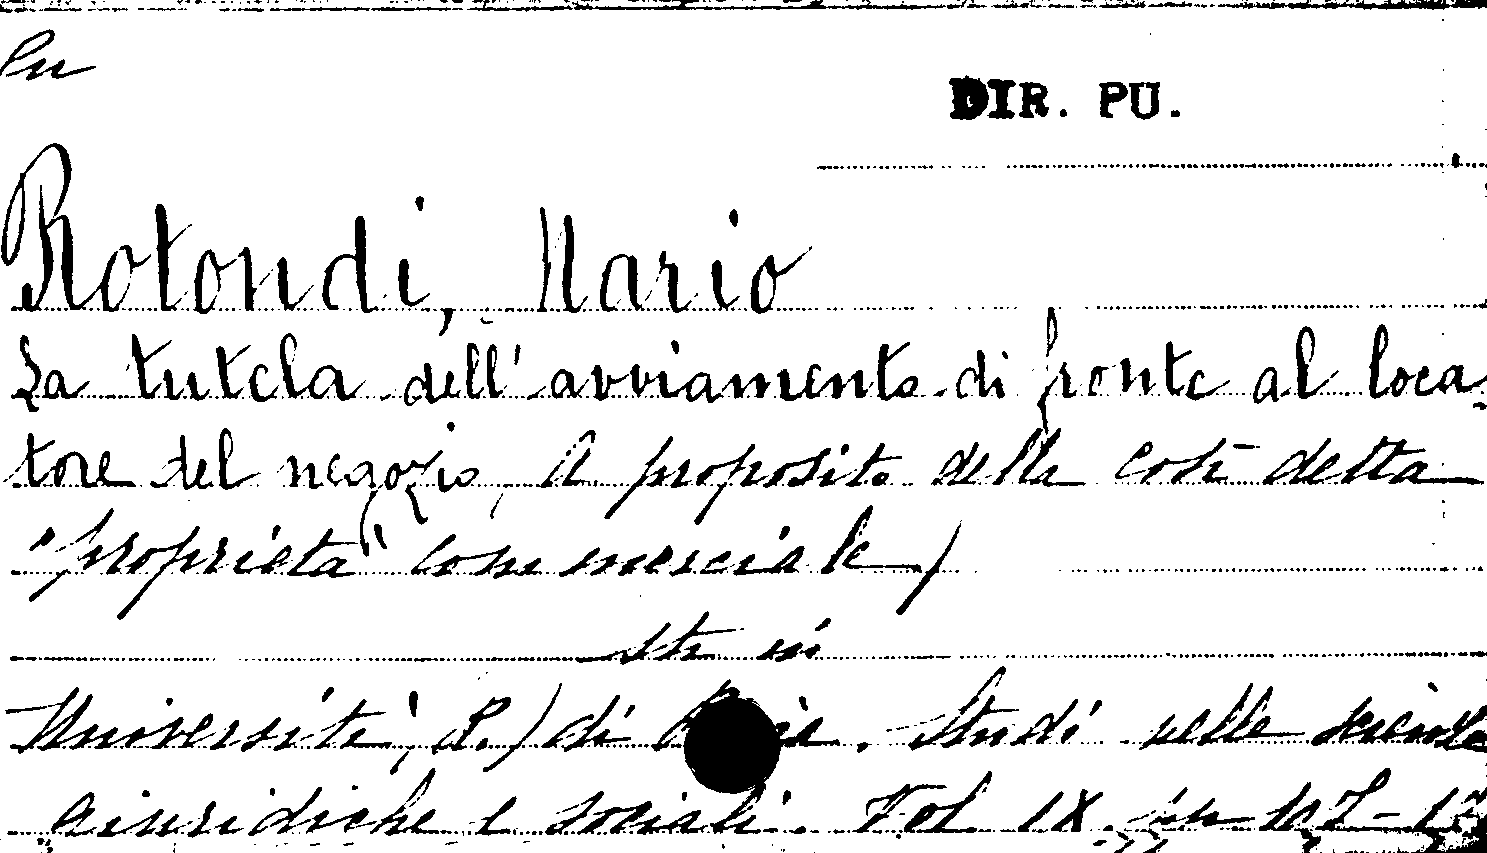 DIR. PU.
Rotondi, Mario
La tutela dell'avviamento di fronte al loca-
tore del negozio, A proposito della così detta
"proprietà" commerciale)
sta in
Università, R.) di Studi nelle scienze
giuridiche e sociali. Vol. IX